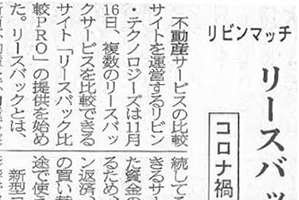 リビンマッチ
リースバッ
コロナ禍
不動産サービスの比較
サイトを運営するリビン
・テクノロジーズは11月
16日、複数のリースバッ
クサービスを比較できる
サイト「リースバック比
較PRO」の提供を始め
た。リースバックとは、
続して
きるサー
た資金の
るため、
ン返済、
の買い替
途で使え
新型コ